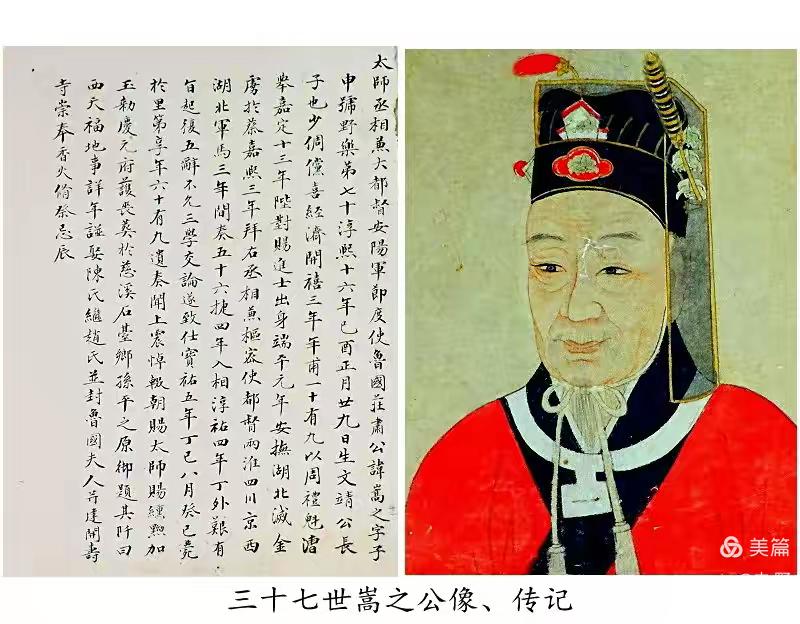 太師丞相兼大都督安陽軍節度使魯國莊肅公諱嵩之字子
申號野樂第七十淳熙十六年己酉正月廿九日生文靖公長
子也少倜儻喜經濟開禧三年年甫一十有九以周禮魁漕
舉嘉定十三年陛對賜進士出身端平元年安撫湖北滅金
虜於蔡嘉熙三年拜右丞相兼樞密使都督兩淮四川京西
湖北軍馬三年間奏五十六捷四年入相淳祐四年丁外艱有
旨起復五辭不允三學交論遂致仕寶祐五年丁巳八月癸巳薨
於里第享年六十有九遺奏聞上震悼輟朝賜太師賜纁勲加
玉勅慶元府護喪葬於慈溪石臺鄉孫平之原御題其阡曰
西天福地事詳年誌娶陳氏繼趙氏並封魯國夫人并建開壽
寺崇奉香火脩祭忌辰
三十七世嵩之公像、传记
美篇